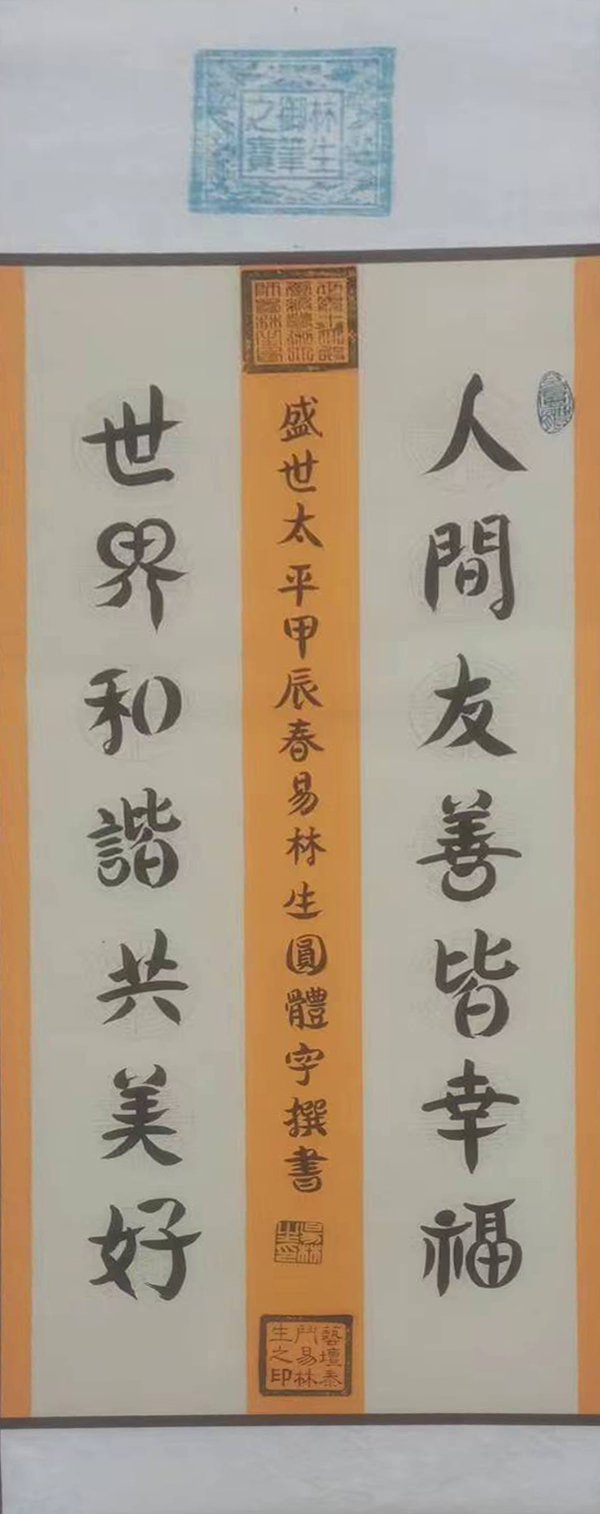 林生
御筆
之寶
人間友善皆幸福
盛世太平甲辰春易林生圓體字撰書
易林
生印
藝壇泰
鬥易林
生之印
世界和諧共美好